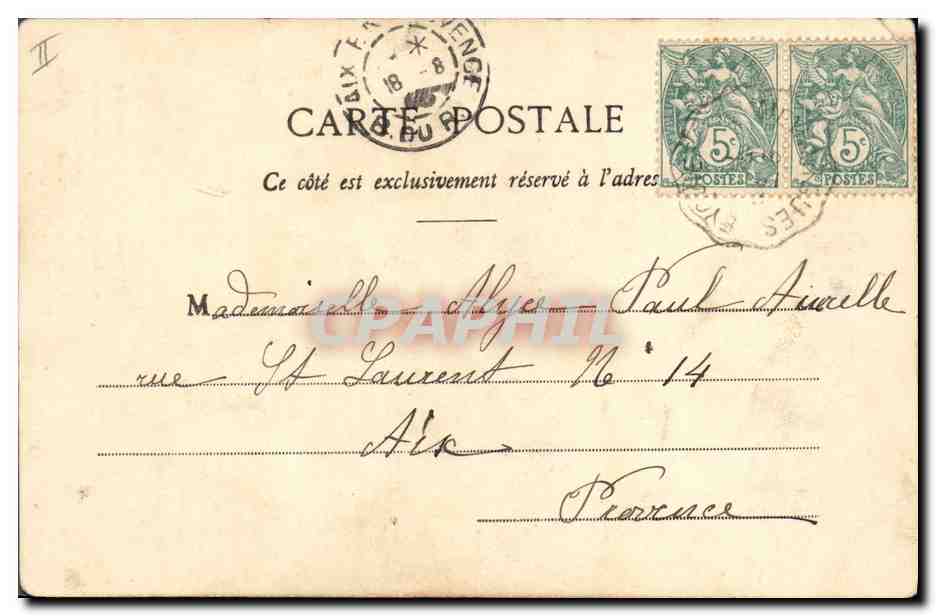 II
AIX EN PROVENCE
18 - 8
B. DU R.
5c 5c
POSTES POSTES
CARTE POSTALE
Ce côté est exclusivement réservé à l'adres
Mademoiselle Alyce Paul Aurelle
CPAPHIL
rue St Laurent No 14
Aix
Provence